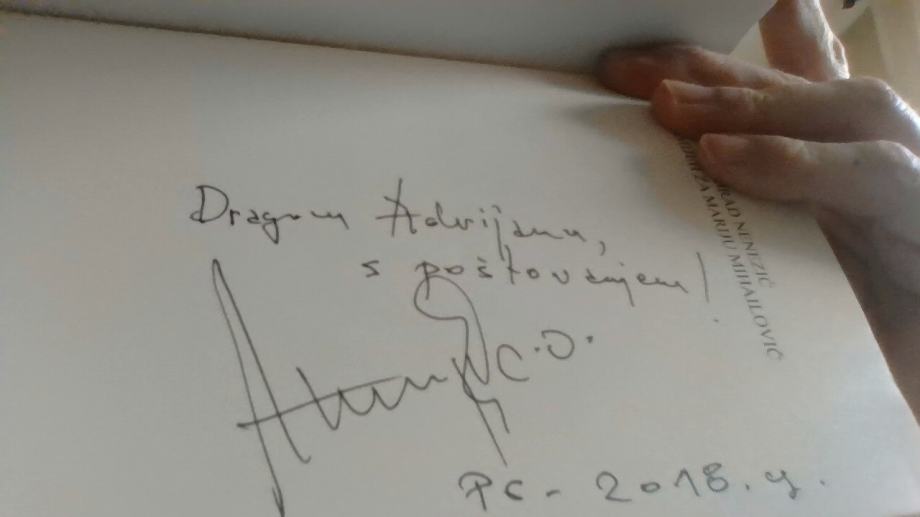 Dragom Adrijanu,
s poštovanjem!
C.D.
PC - 2018. g.
RAD NENEZIĆ
ZA MARIJU MIHAILOVIĆ